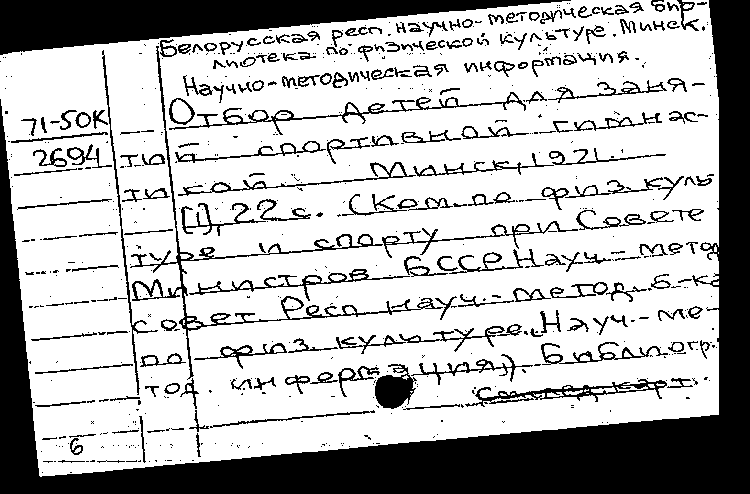 Белорусская респ. научно-методическая биб-
лиотека по физической культуре. Минск.
Научно-методическая информация.
71-50К
2694
Отбор детей для заня-
тий спортивной гимнас-
тикой. Минск, 1971.
[1], 22 с. (Ком. по физ. куль
туре и спорту при Совете
Министров БССР. Науч.-метод.
совет Респ науч.-метод. б-ка
по физ. культуре. "Науч.-ме-
тод. информация"). Библиогр.
6